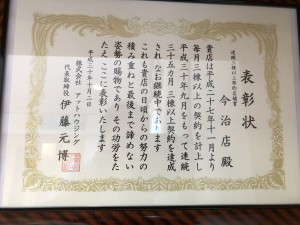 表彰状
連続三棟以上契約達成賞
今治店殿
貴店は平成二十七年十一月より
毎月三棟以上の契約を計上し
平成三十年九月をもって連続
三十五カ月 三棟以上契約を達成
され なお継続中であります
これも貴店の日頃からの努力の
積み重ねと最後まで諦めない
姿勢の賜物であり その功労をた
たえ ここに表彰いたします
平成三十年十月二日
株式会社 アットハウジング
代表取締役 伊藤元博